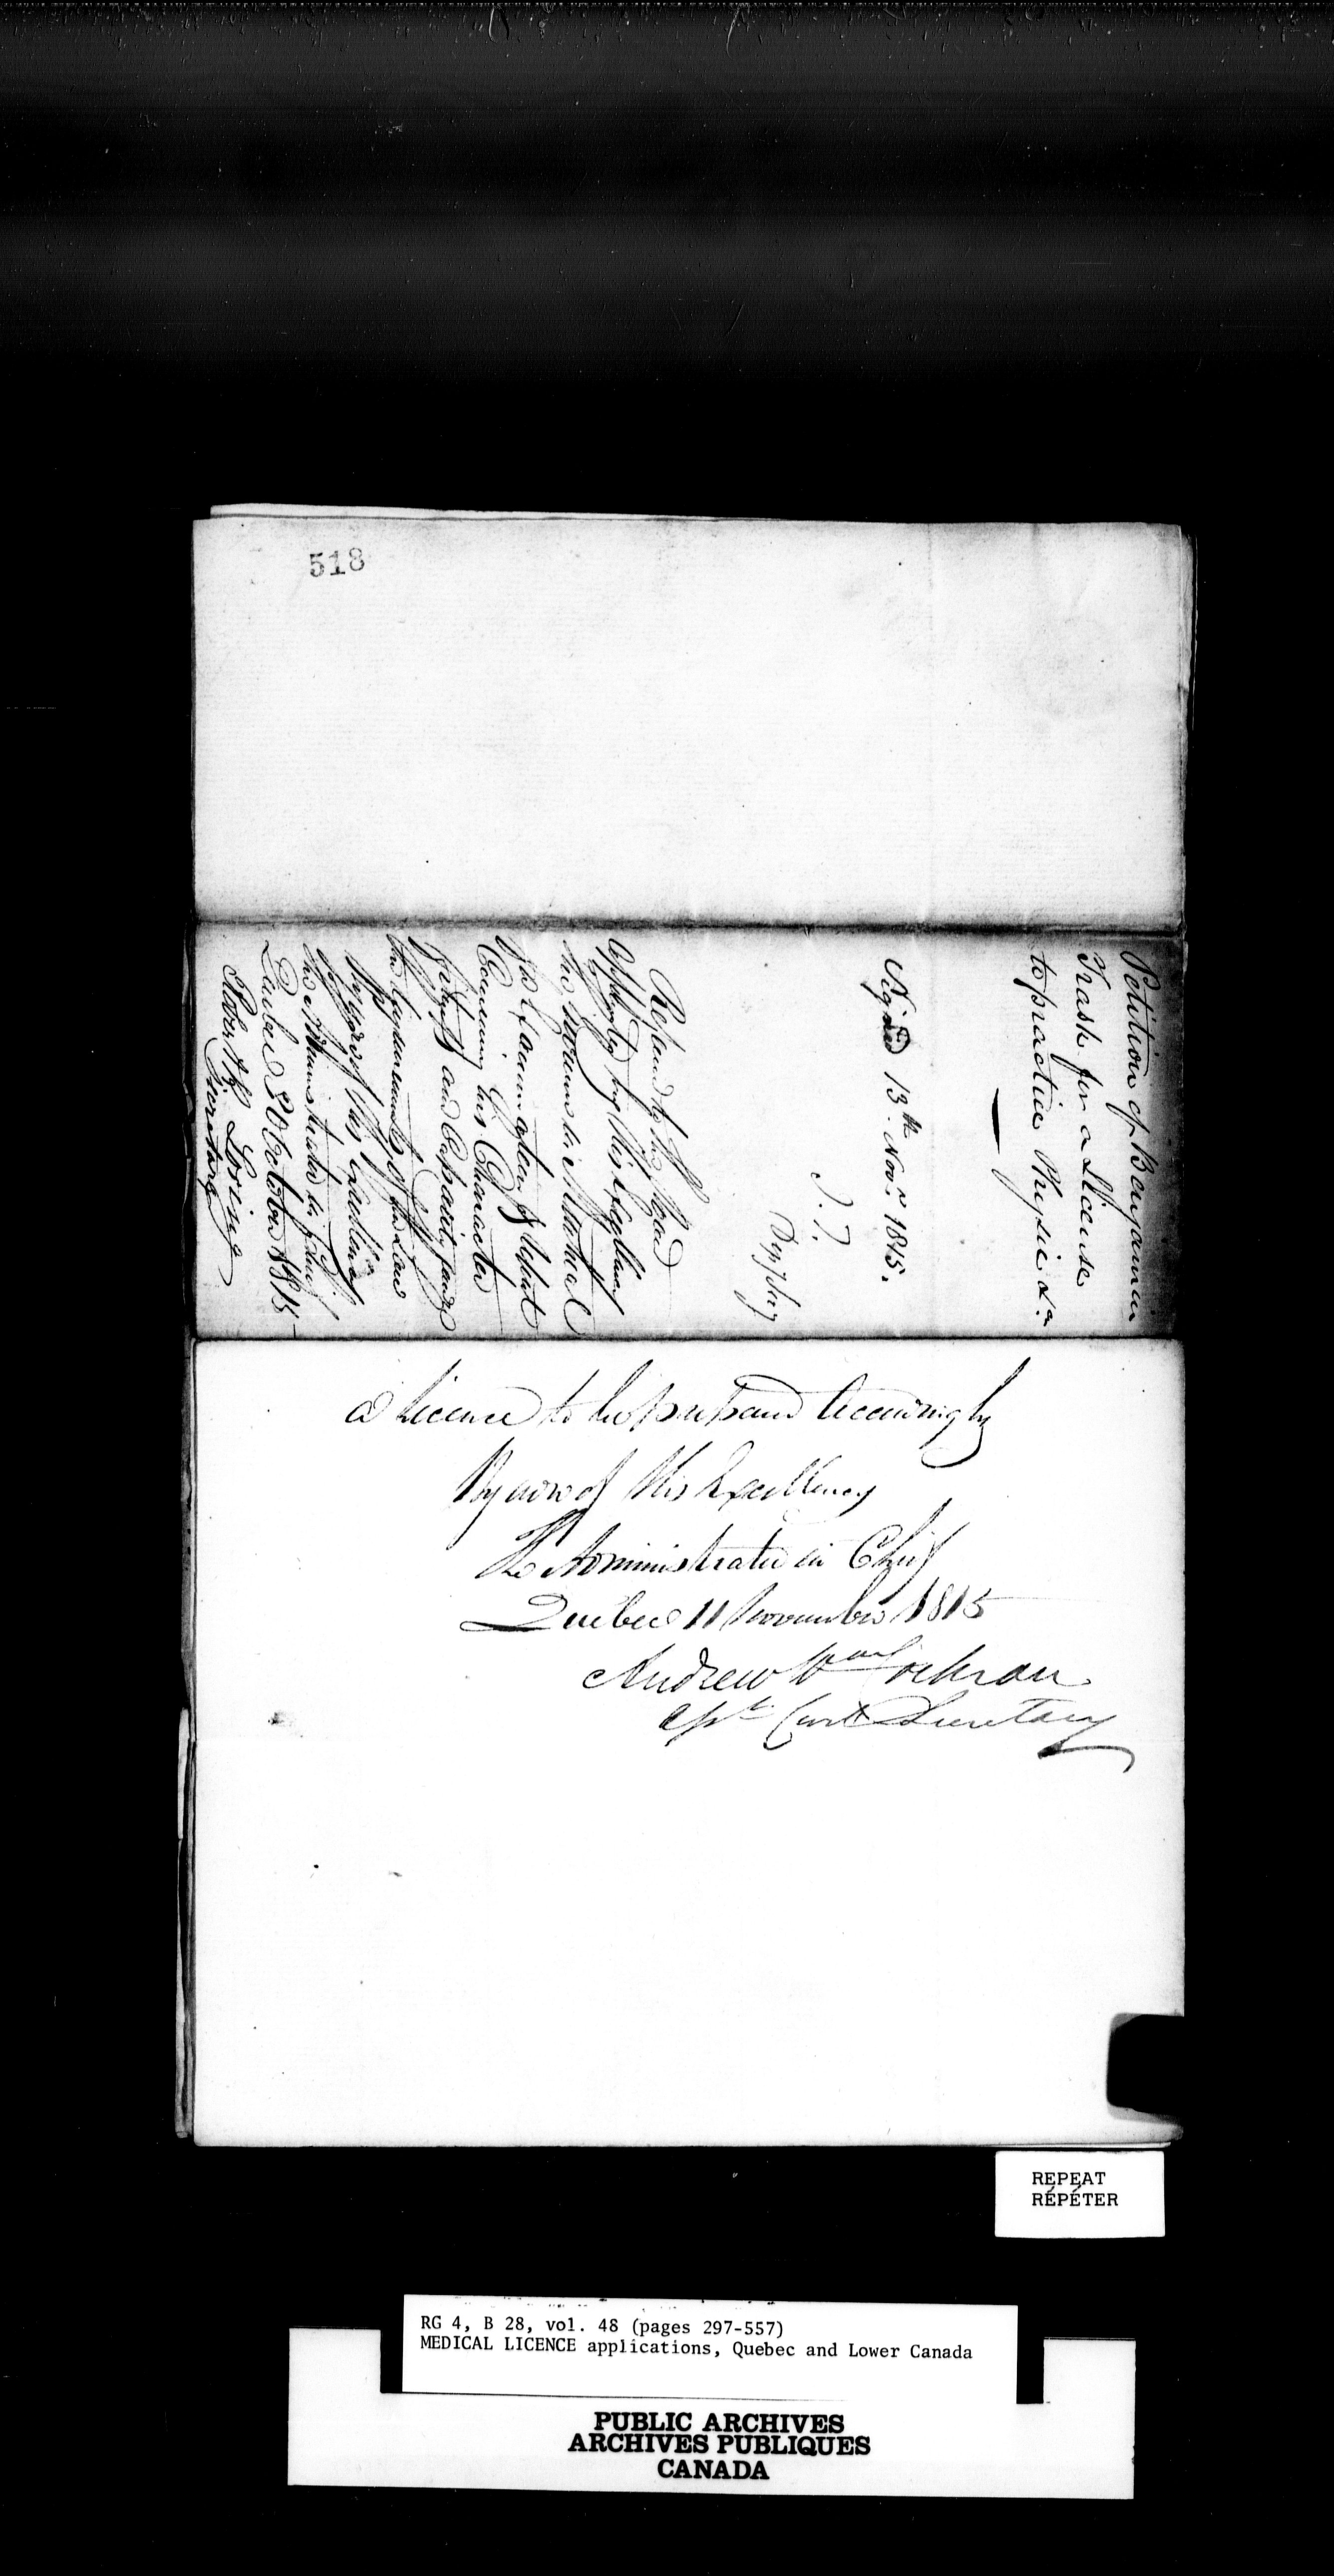 518
Petition of Benjamin
Trask for a License
to practice Physic &c
Signed 13th Novr 1815.
J. T.
Refered to the Board
appointed by His Excellency
the Governor in
for Examination & Report
Concerning his Character
fitness and Capacity
the requirements of the Law
By order of His Excellency
the Administrator in Chief
Quebec October 1815
Robt R. Loring
Secretary
a Licence to be prepared Accordingly
By order of His Excellency
The Administrator in Chief
Quebec 11 November 1815
Andrew Wm Cochran
Asst Civil Secretary
REPEAT
RÉPÉTER
RG 4, B 28, vol. 48 (pages 297-557)
MEDICAL LICENCE applications, Quebec and Lower Canada
PUBLIC ARCHIVES
ARCHIVES PUBLIQUES
CANADA